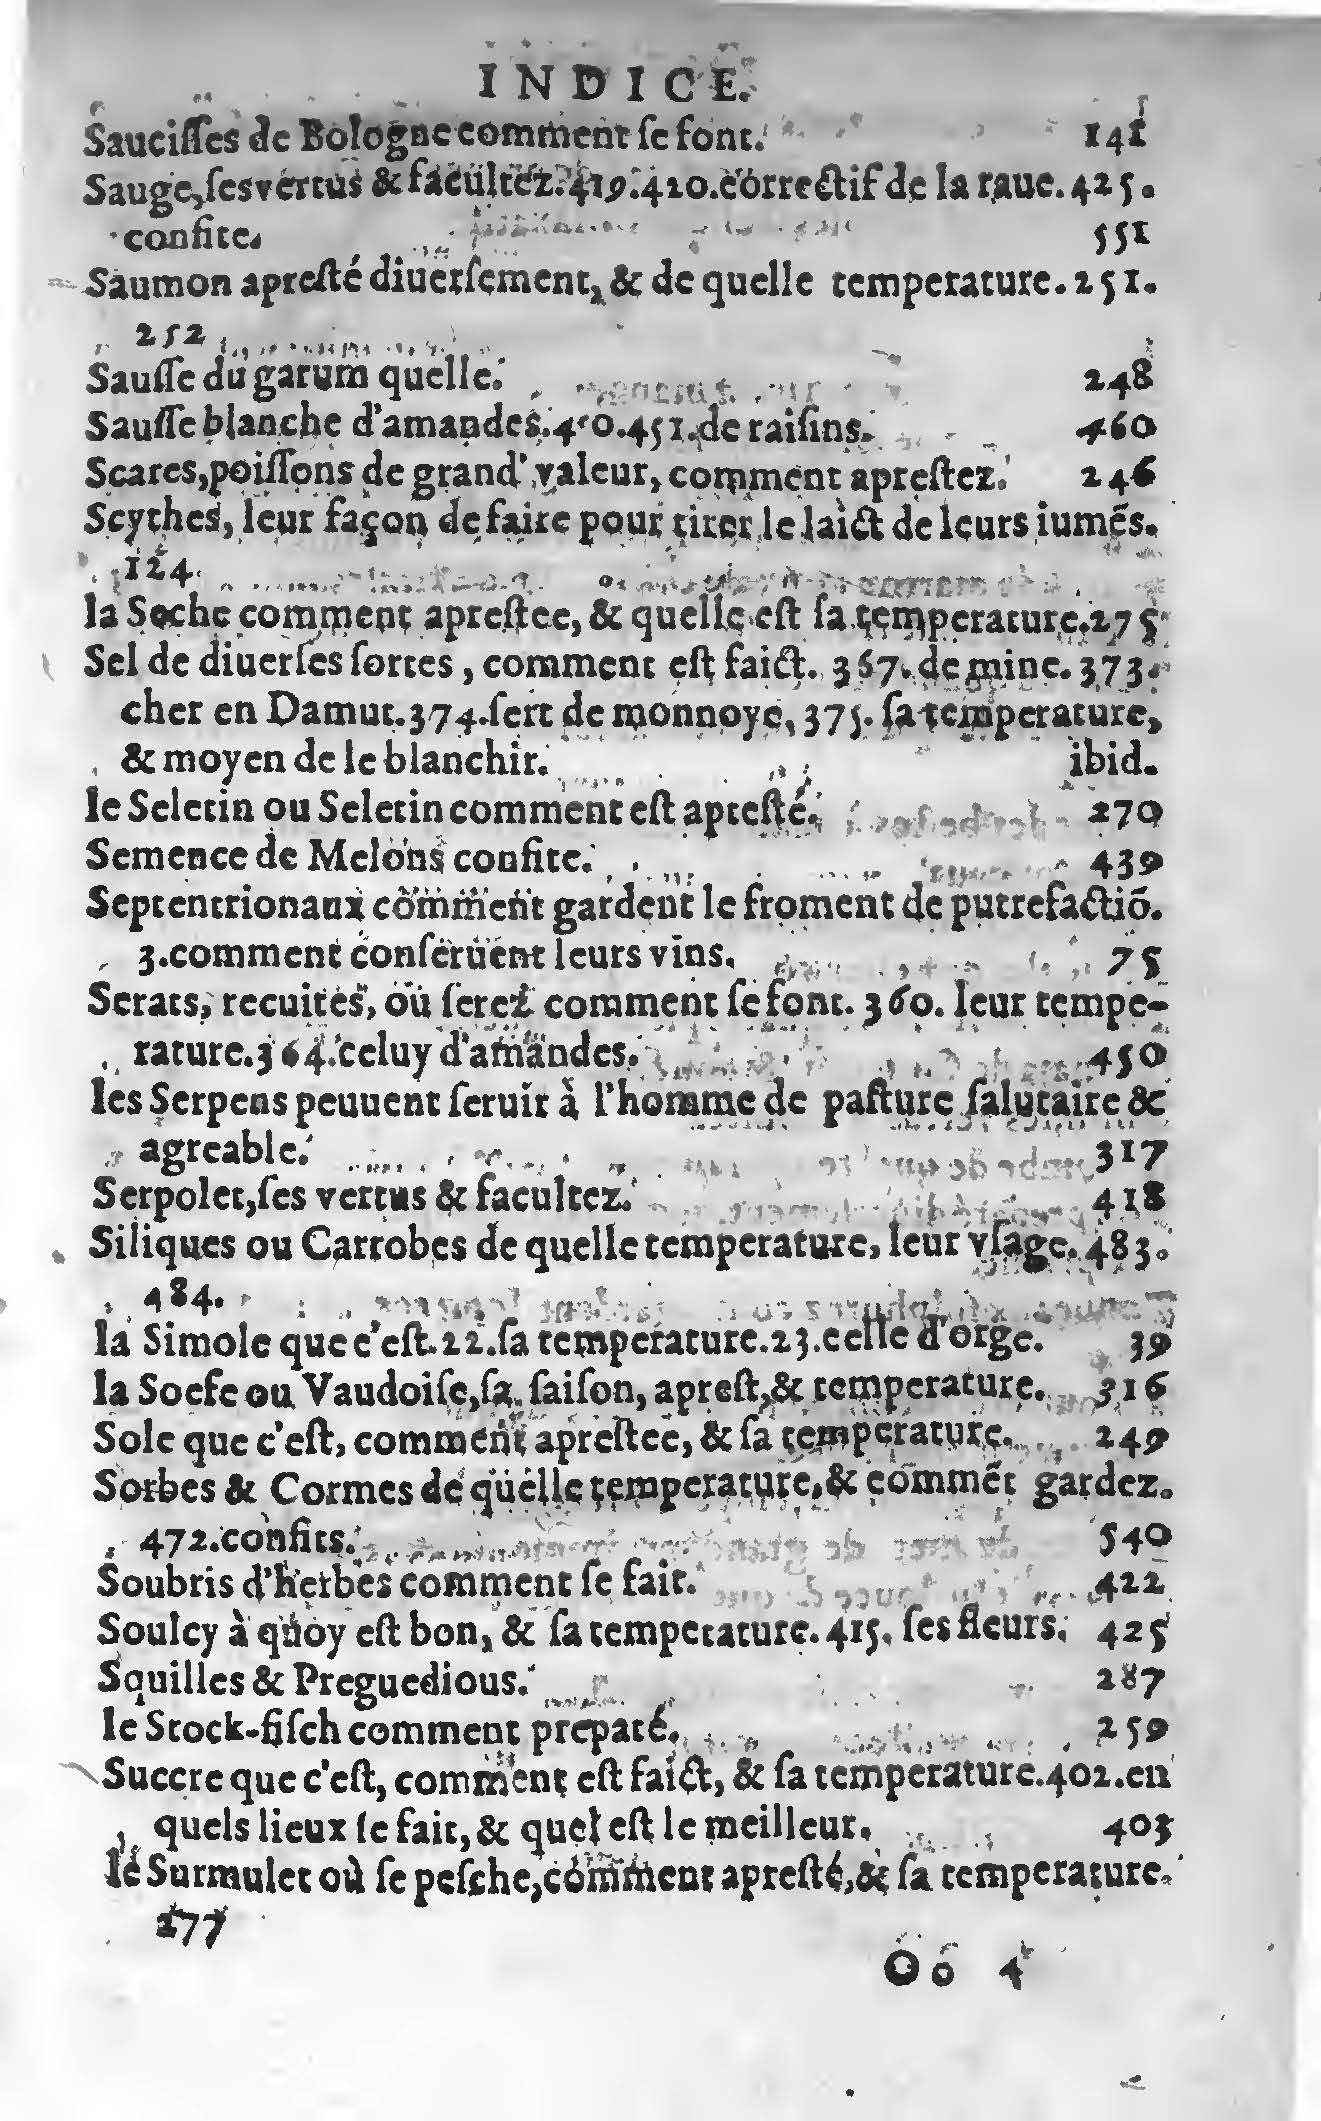 INDICE.
Sauciſſes de Bologne comment ſe font. 141
Sauge, ſes vertus & facultez. 419. 420. correctif de la raue. 425.
confite. 551
Saumon apreſté diuerſement, & de quelle temperature. 251.
252
Sauſſe du garum quelle. 248
Sauſſe blanche d'amandes. 450. 451. de raiſins. 460
Scares, poiſſons de grand' valeur, comment apreſtez. 246
Scythes, leur façon de faire pour tirer le laict de leurs iumẽs.
124.
la Seche comment apreſtee, & quelle eſt ſa temperature. 275
Sel de diuerſes ſortes, comment eſt faict. 367. de mine. 373.
cher en Damut. 374. ſert de monnoye, 375. ſa temperature,
& moyen de le blanchir. ibid.
le Seletin ou Seletin comment eſt apreſté. 270
Semence de Melons confite. 439
Septentrionaux comment gardent le froment de putrefactiō.
3. comment conſeruent leurs vins. 75
Serats, recuites, ou ſerez comment ſe font. 360. leur tempe-
rature. 364. celuy d'amandes. 450
les Serpens peuuent ſeruir à l'homme de paſture ſalutaire &
agreable. 317
Serpolet, ſes vertus & facultez. 418
Siliques ou Carrobes de quelle temperature, leur vſage. 483.
484.
la Simole que c'eſt. 22. ſa temperature. 23. celle d'orge. 39
la Soefe ou Vaudoiſe, ſa ſaiſon, apreſt, & temperature. 316
Sole que c'eſt, comment apreſtee, & ſa temperature. 249
Sorbes & Cormes de quelle temperature, & commẽt gardez.
472. confits. 540
Soubris d'herbes comment ſe fait. 422
Soulcy à quoy eſt bon, & ſa temperature. 415. ſes fleurs. 425
Squilles & Preguedious. 287
le Stock-fiſch comment preparé. 259
Succre que c'eſt, comment eſt faict, & ſa temperature. 402. en
quels lieux ſe fait, & quel eſt le meilleur. 403
le Surmulet où ſe peſche, comment apreſté, & ſa temperature.
277
Oo 4